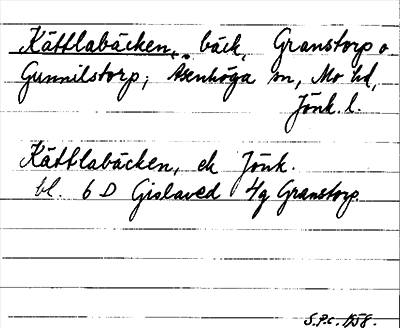 Kättlabäcken, bäck, Granstorp o
Gunnilstorp; Åsenhöga sn, Mo hd,
Jönk. l.
Kättlabäcken, ek Jönk.
bl. 6 D Gislaved 4g Granstorp.
S.P.c. 1958.